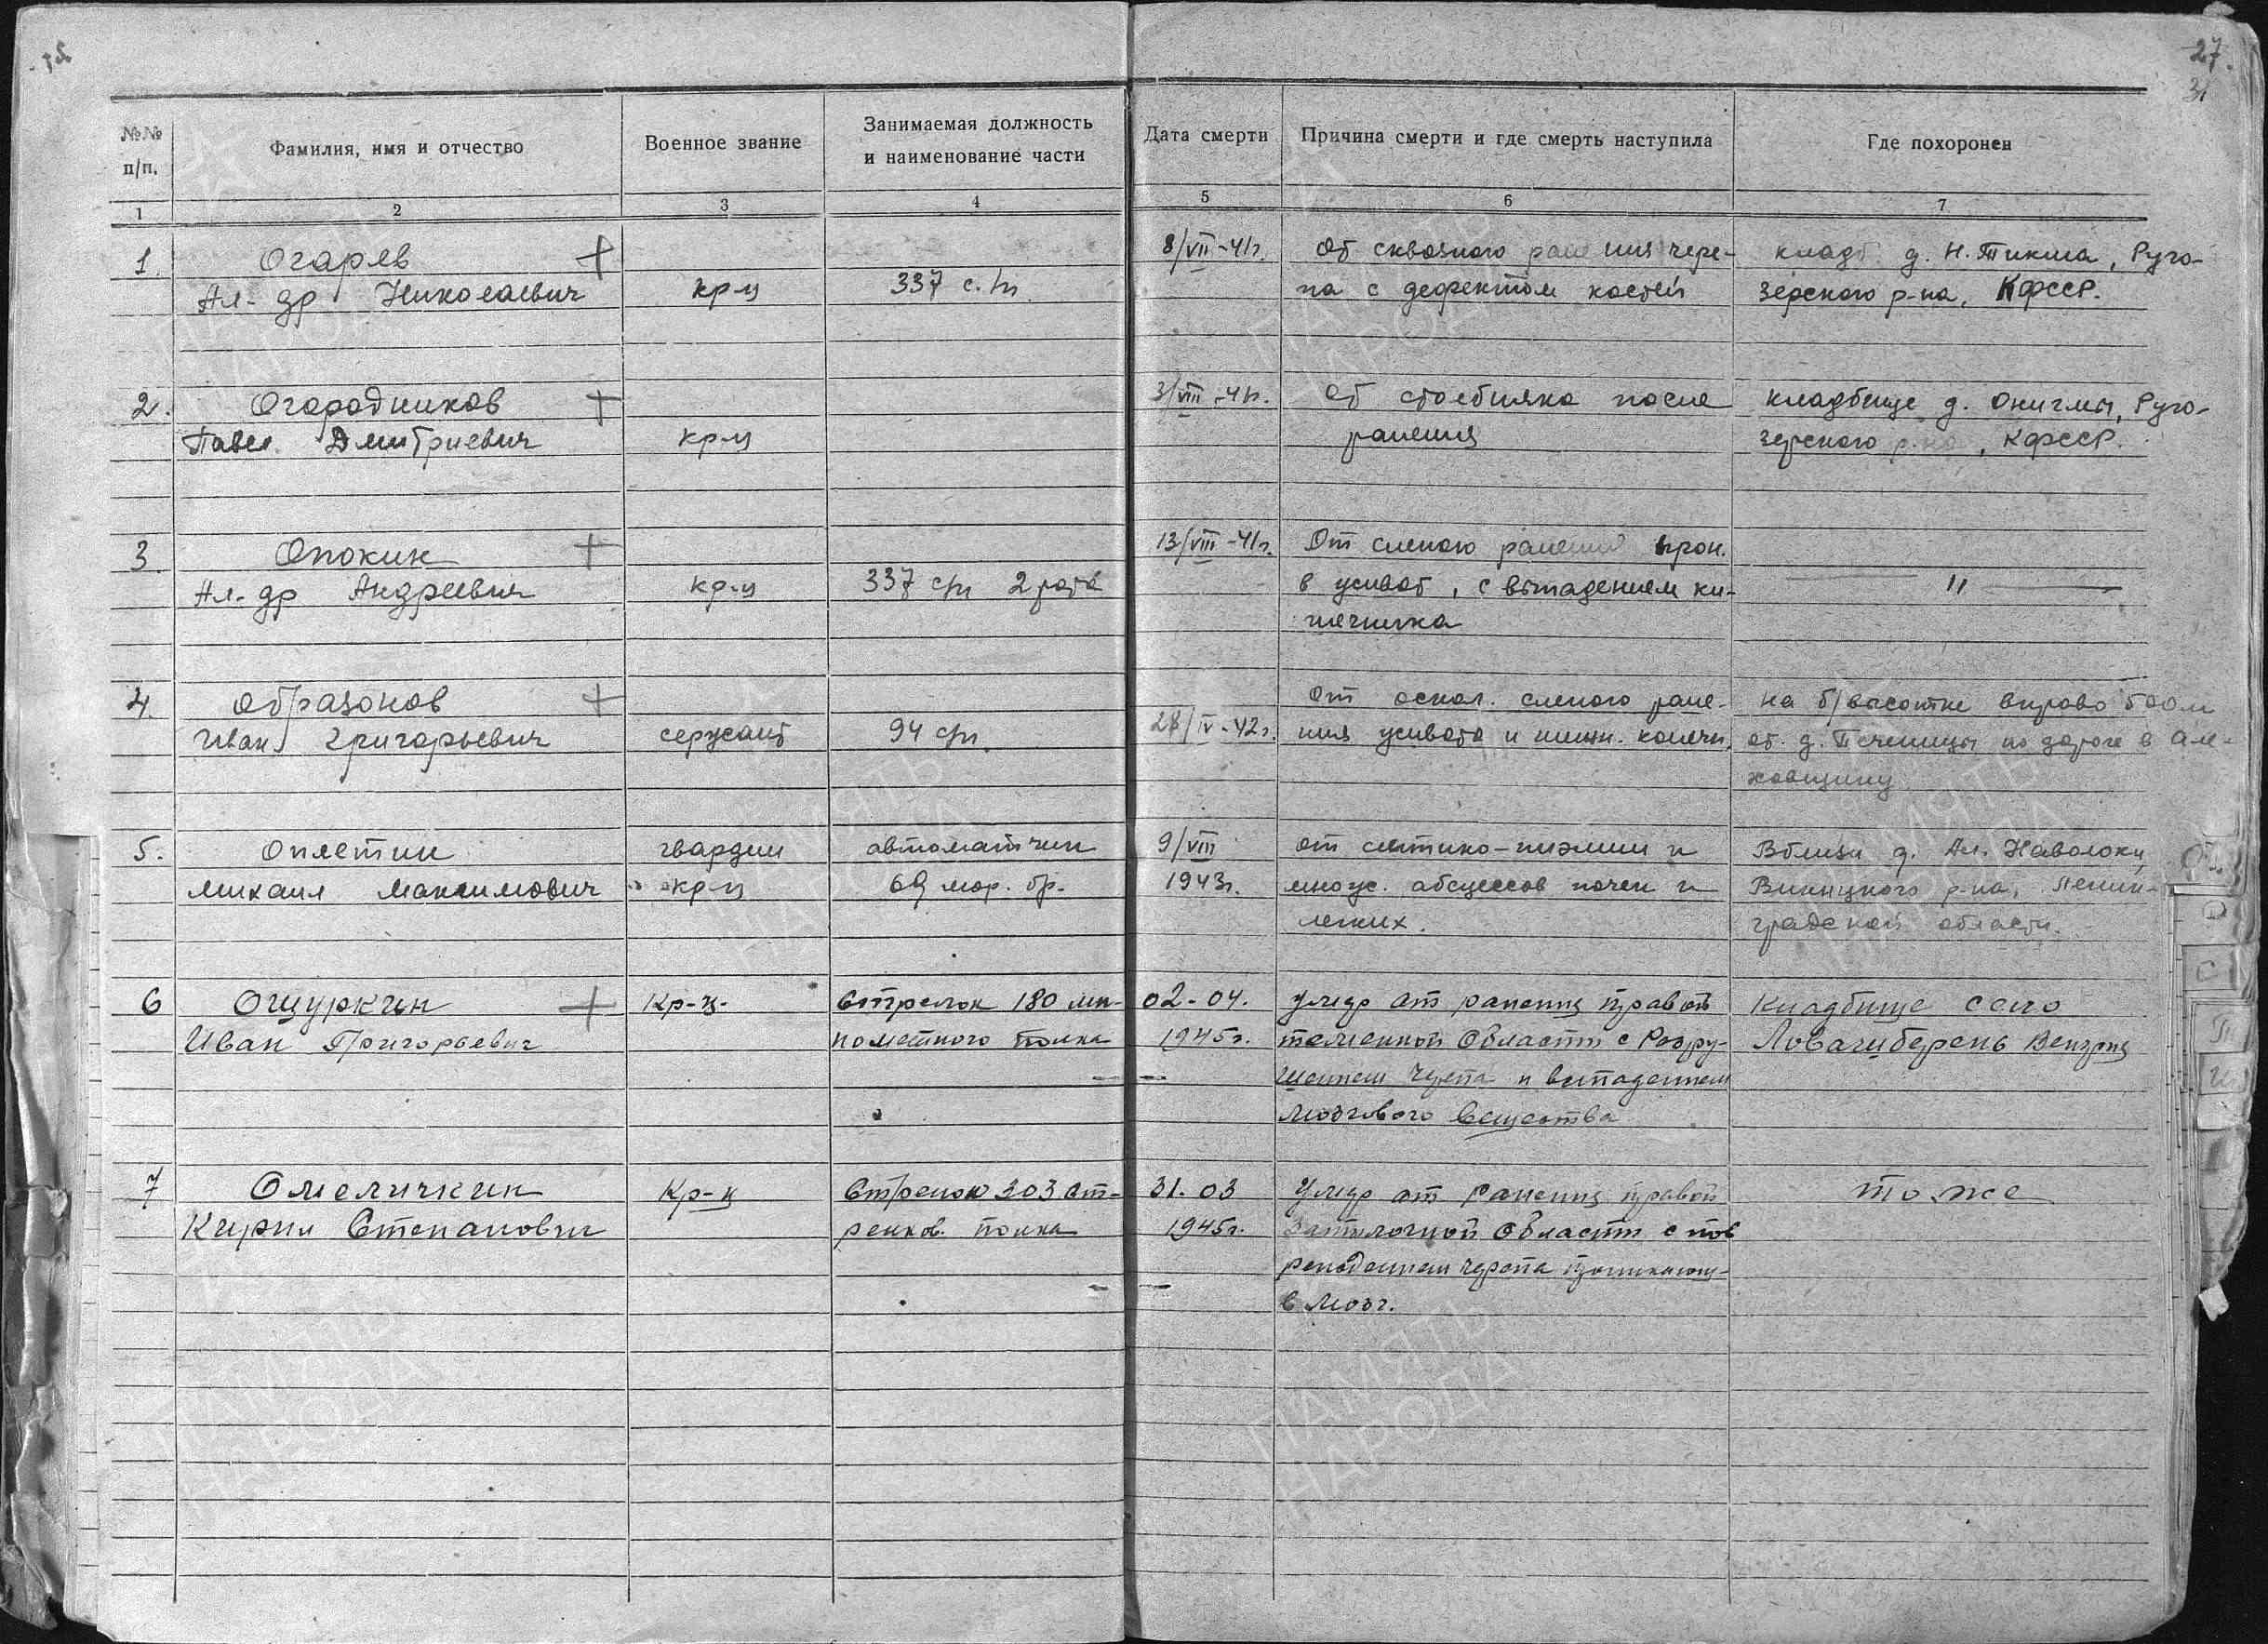 27.
31
№№ п/п.
Фамилия, имя и отчество
Военное звание
Занимаемая должность и наименование части
Дата смерти
Причина смерти и где смерть наступила
Где похоронен
1 2 3 4 5 6 7
1. Огарев + 8/VII-41г. От сквозного ранения чере- кладб. д. Н. Тикша, Руго-
Ал-др Николаевич кр-ц 337 с.п. па с дефектом костей зерского р-на, КФССР.
2. Огородников + 3/VIII-41г. От столбняка после кладбище д. Онигмы, Руго-
Павел Дмитриевич кр-ц ранения зерского р-на, КФССР.
3. Опокин + 13/VIII-41г. От слепого ранения прон.
Ал-др Андреевич кр-ц 337 сп 2 рота в живот, с выпадением ки- "
шечника
4. Образонов + От оскол. слепого ране- на б/высотке вправо 500 м
Иван Григорьевич сержант 94 сп. 28/IV-42г. ния живота и нижн. конечн. от д. Печеницы по дороге в Але-
ховщину
5. Опястин гвардии автоматчик 9/VIII от септико-пиэмии и Вблизи д. Ал. Наволоки,
Михаил Максимович кр-ц 69 мор. бр. 1943г. множ. абсцессов почек и Винницкого р-на, Ленин-
легких. градской области.
6 Ощуркин + Кр-ц- Стрелок 180 ми- 02-04. Умер от ранения правой Кладбище село
Иван Григорьевич нометного полка 1945г. теменной области с Разру- Ловашберень Венгрия
шением черепа и выпадением
мозгового вещества
7 Омеличкин Кр-ц Стрелок 303 ст- 31.03 Умер от ранения правой то-же
Кирил Степанович релков. полка 1945г. Затылочной области с пов
реждением черепа проникающ-
в мозг.
О
П
С
Т
ПАМЯТЬ НАРОДА